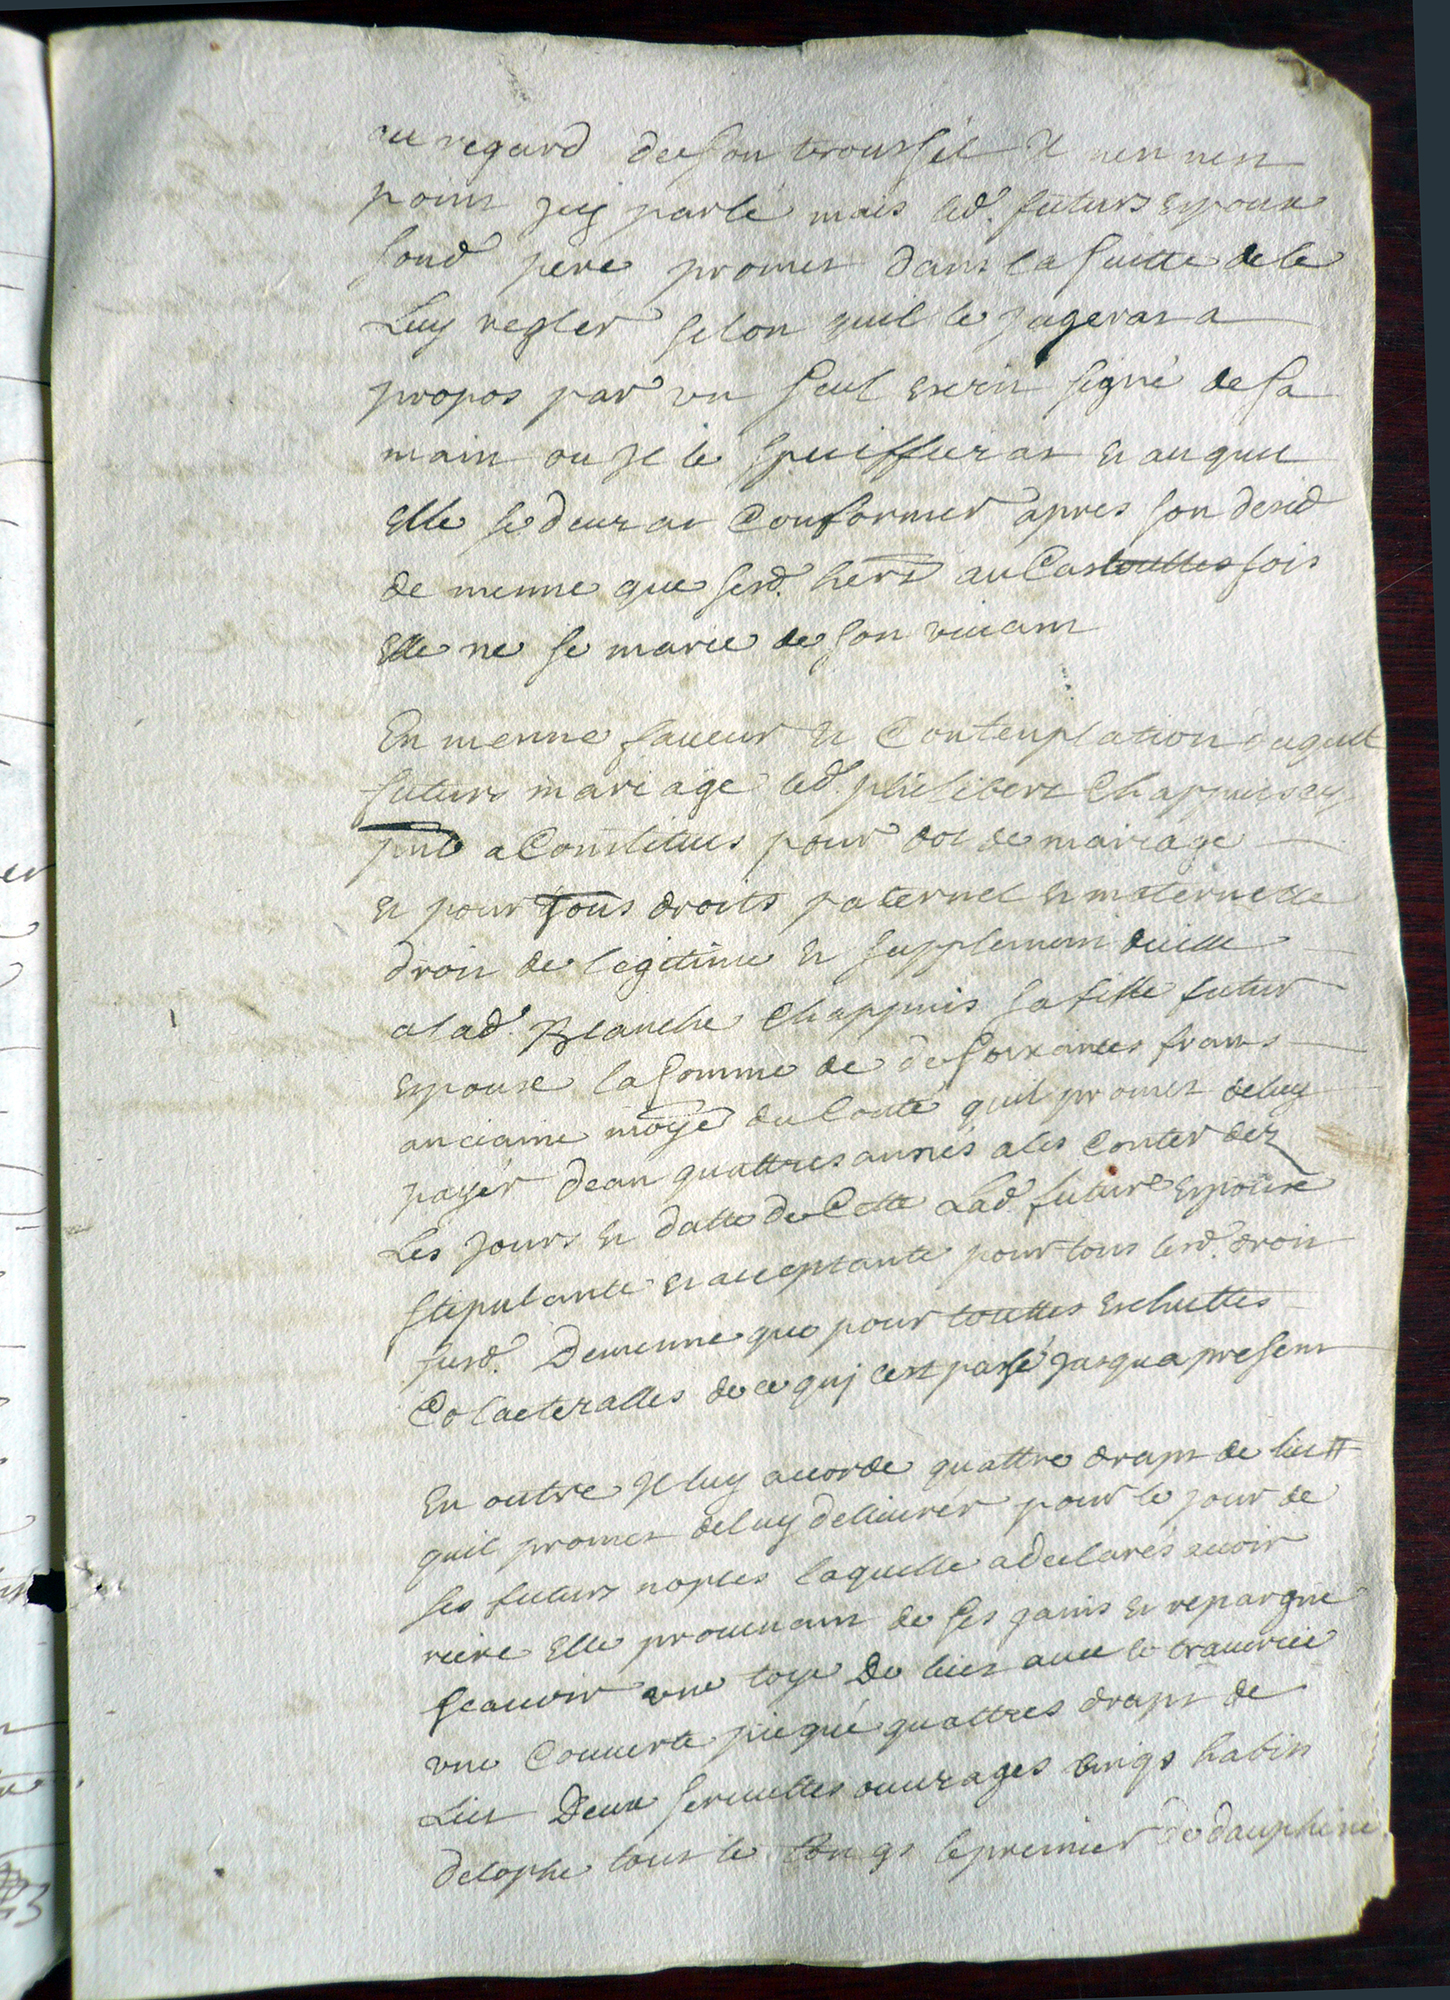 au regard de son troussel Il nen nest
point Icy parlé mais led. futurs Espoux
sond père promet dans la suitte de le
Luy regler selon quil le jugerat a
propos par un seul Escrit signé de sa
main ou Il le spuiffierat et auquel
Elle se deurat Conformer apres son deced
de menne que sesd. hers au Cas touttes fois
Elle ne se marie de son viuant
En menne faueur et Contemplation duquel
futurs mariage led. philibert Chappuis cy
pnt a Constitues pour dot de mariage
et pour tous droits paternel et maternelle
droit de legitime et supplement dicelle
a lad. Blanche Chappuis sa fille futur
Espouse la somme de de soixantes frans
anciaine moye du Conté quil promet de luy
payér dean quattres annés a les Conter dez
Les Jours et datte de Cette Lad. future Espouse
stipulante et acceptante pour tous lesd. droit
susd. De menne que pour touttes Eschuttes
Colacteralles de ce quj cest passé Jusqua present
En outre Il luy accorde quattre draps de lict
quil promet de luy deliurér pour le jour de
ses futurs nopces laquelle a declarés auoir
riere Elle prouenant de ses gains et repargne
scauoir une toye De lict auec le trauercié
une Couuerte piequé quattres draps de
Lict Deux seruiettes ouurages cinqs habits
detophe tout le longs le premier de dauphiné